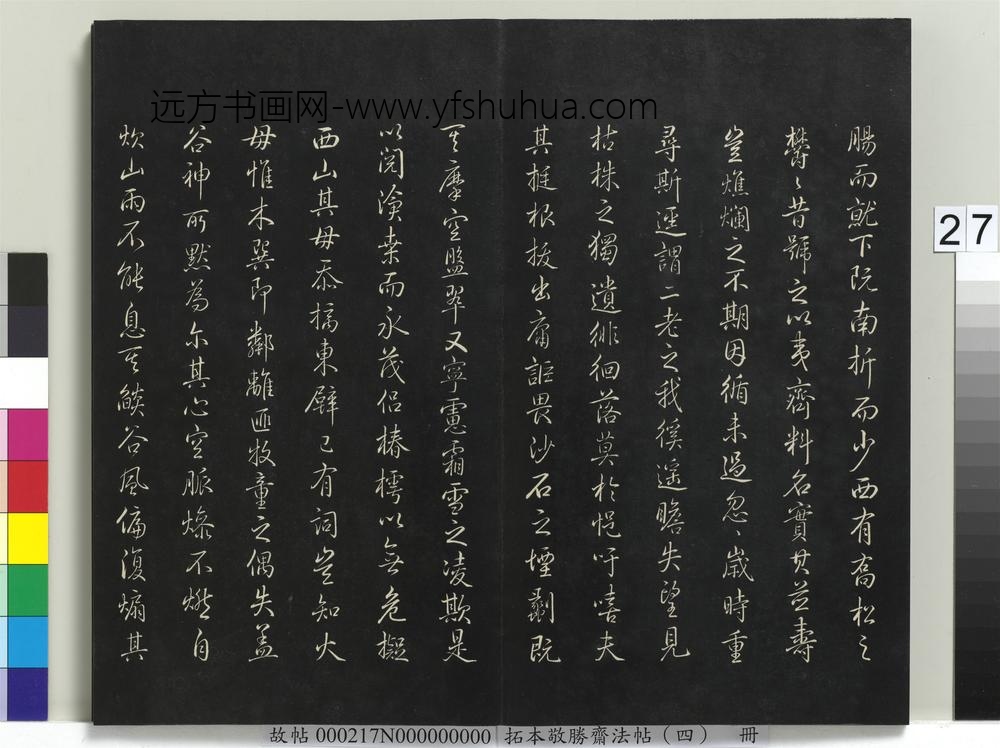 远方书画网-www.yfshuhua.com
腸而就下阮南折而少西有喬松之
欝〻昔號之以夷齊料名實其並壽
豈燋爛之不期因循未過忽〻歲時重
尋斯逕謂二老之我徯遥瞻失望見
枯株之獨遺徘徊落莫於悒吁嘻夫
其挺根拔出庸詎畏沙石之堙剷既
其摩空盬翠又寧慮霜雪之凌欺是
以閲滄桒而永茂侣椿樗以無危擬
西山其毋忝搞東壁已有詞豈知火
毋惟木巽即鄰離匪牧童之偶失盖
谷神所默為尔其心空脈燥不燃自
炊山雨不能息其燄谷風偏復煽其
27
故帖 000217N000000000 拓本敬勝齋法帖（四） 冊